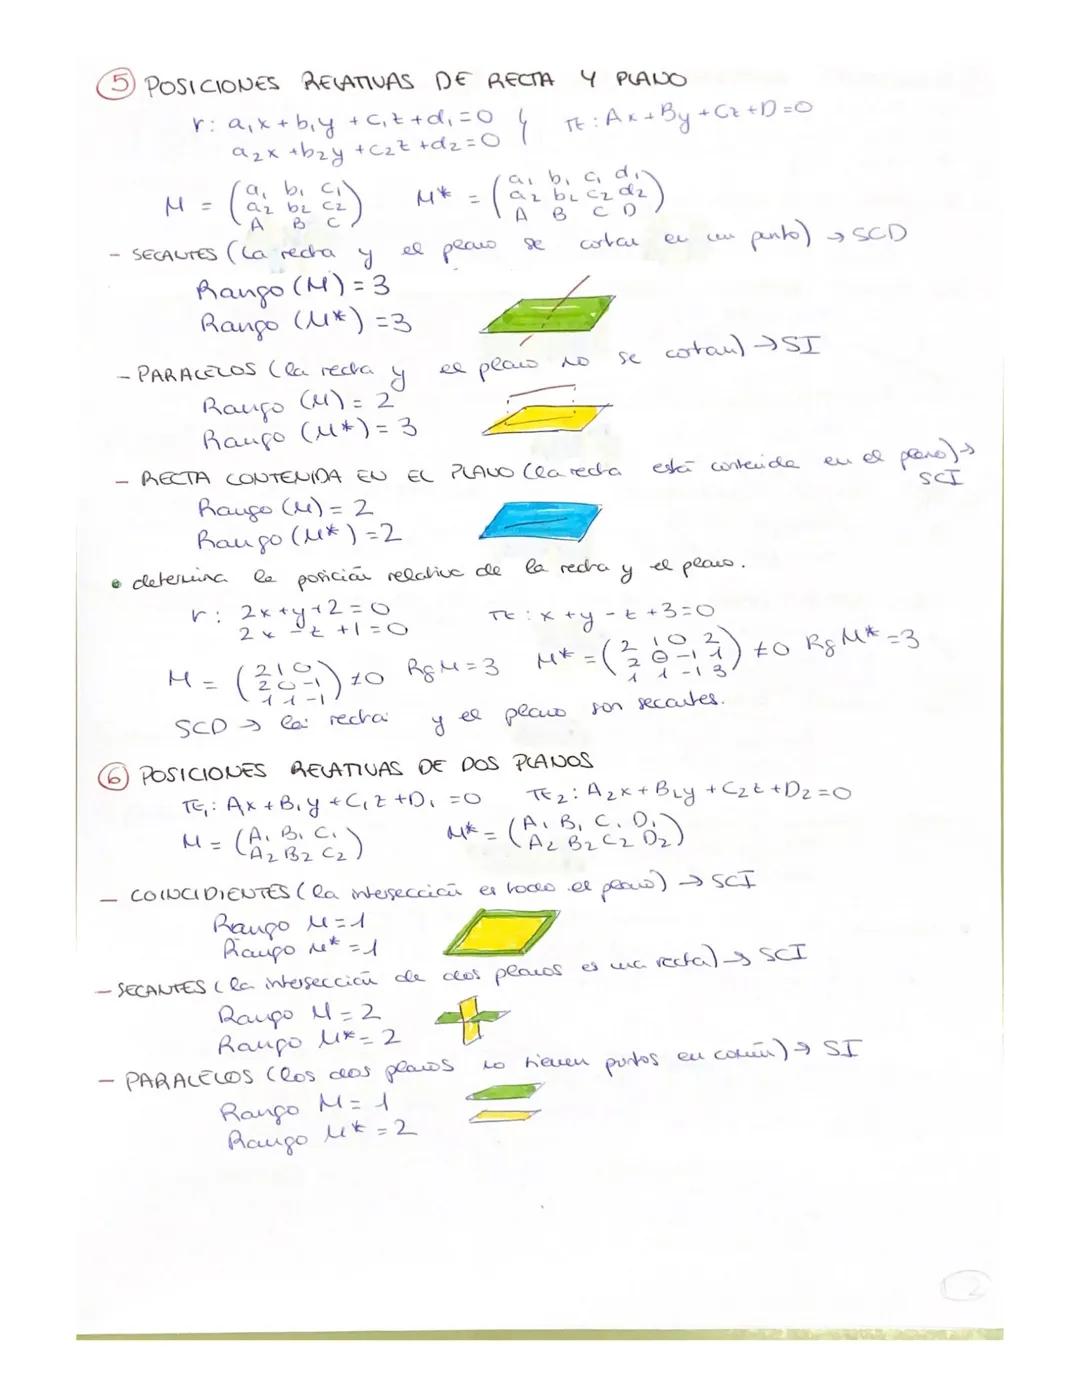 5 POSICIONES RELATIVAS DE RECTA Y PLANO
r: a₁x + b₁y + c₁z + d₁ = 0 } π: Ax + By + Cz + D = 0
a₂x + b₂y + c₂z + d₂ = 0
M = (a₁ b₁ c₁ M* = (a₁ b₁ c₁ d₁
a₂ b₂ c₂ a₂ b₂ c₂ d₂
A B C) A B C D)
- SECANTES (La recta y el plano se cortan en un punto) → SCD
Rango (M) = 3
Rango (M*) = 3
- PARALELOS (la recta y el plano no se cortan) → SI
Rango (M) = 2
Rango (M*) = 3
- RECTA CONTENIDA EN EL PLANO (la recta está contenida en el plano) →
SCI
Rango (M) = 2
Rango (M*) = 2
• determina la posición relativa de la recta y el plano.
r: 2x + y + 2 = 0 π: x + y - z + 3 = 0
2x - z + 1 = 0
M = (2 1 0 ≠0 Rg M = 3 M* = (2 1 0 2 ≠0 Rg M* = 3
2 0 -1 2 0 -1 1
1 1 -1) 1 1 -1 3)
SCD → la recta y el plano son secantes.
6 POSICIONES RELATIVAS DE DOS PLANOS
π₁: Ax + B₁y + C₁z + D₁ = 0 π₂: A₂x + B₂y + C₂z + D₂ = 0
M = (A₁ B₁ C₁ M* = (A₁ B₁ C₁ D₁
A₂ B₂ C₂) A₂ B₂ C₂ D₂)
- COINCIDIENTES (la intersección es todo el plano) → SCI
Rango M = 1
Rango M* = 1
- SECANTES (la intersección de dos planos es una recta) → SCI
Rango M = 2
Rango M* = 2
- PARALELOS (los dos planos no tienen puntos en común) → SI
Rango M = 1
Rango M* = 2
2